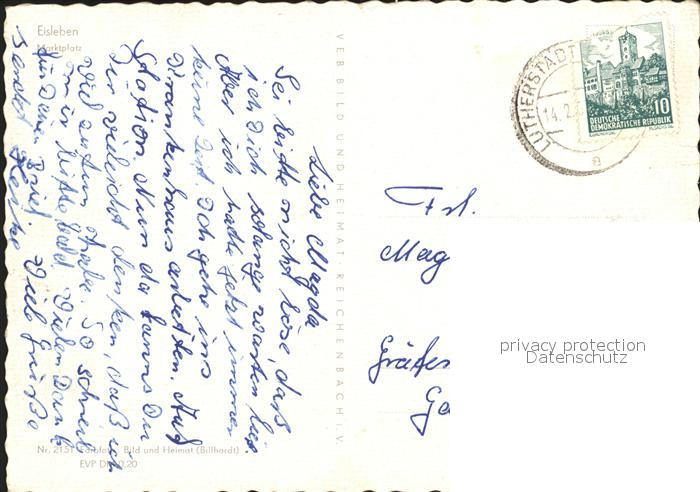 Eisleben
Marktplatz
Liebe Magda
Sei bitte nicht böse, daß
ich Dich solange warten lies.
Aber ich hatte jetzt immer
keine Zeit. Ich gehe ins
Krankenhaus arbeiten. Auf
Station. Nun da kannst Du
Dir vieleicht denken, daß ich
viel zutun habe. So schreib
mir bitte bald. Vielen Dank
für Deinen Brief. Viele Grüße
sendet
VERBBILD UND HEIMAT REICHENBACH i. V.
Nr. 2151 Bild und Heimat (Billhardt)
EVP DM 0.20
LUTHERSTADT
14.2.
a
10
DEUTSCHE
DEMOKRATISCHE REPUBLIK
Frl.
Mag
Gräfen
Ga
privacy protection
Datenschutz